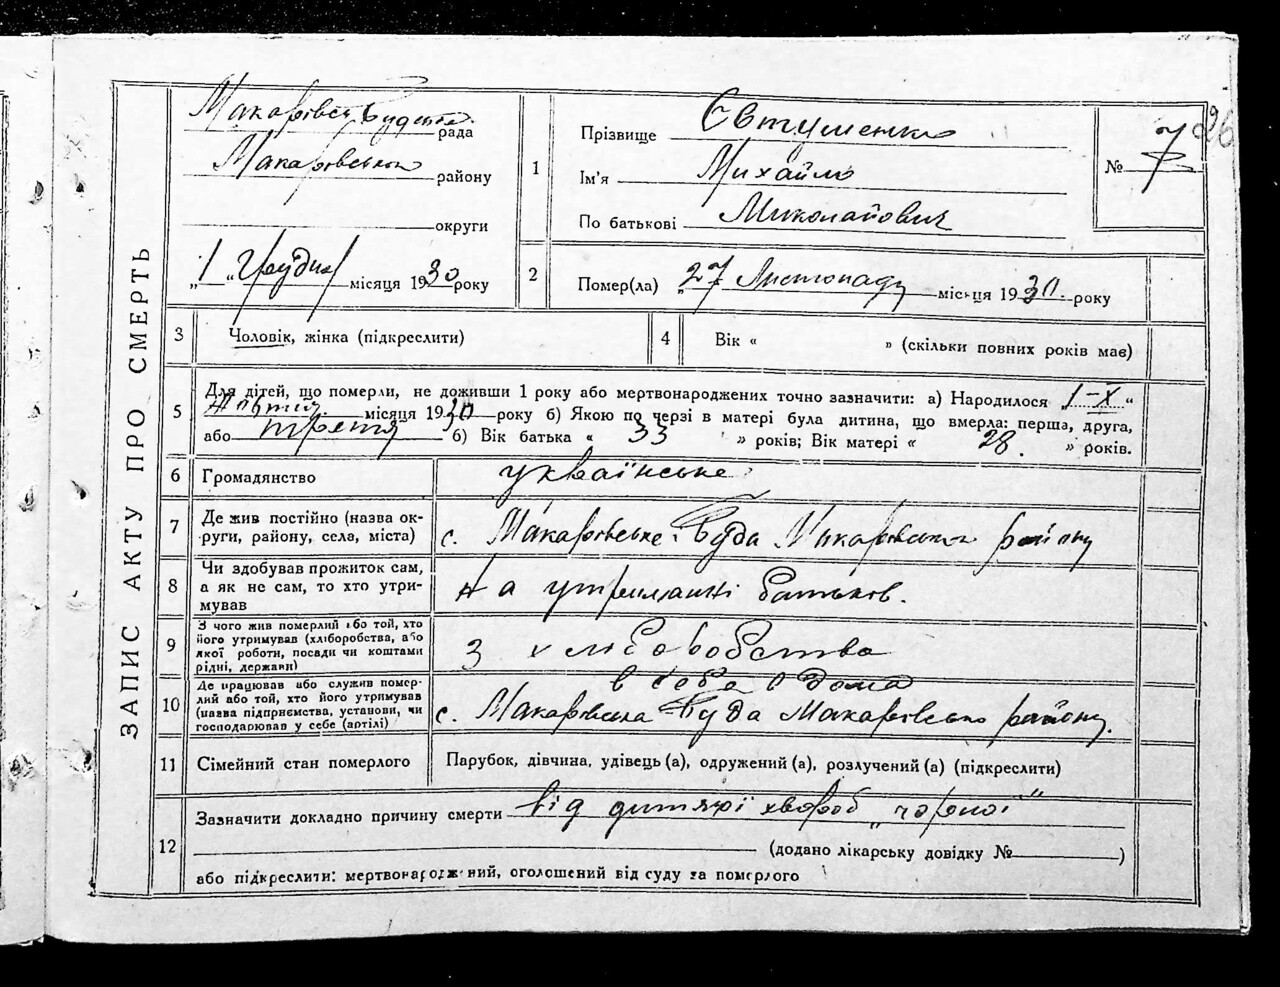 26
ЗАПИС АКТУ ПРО СМЕРТЬ
Макарівсько Будська рада
Макарівського району
округи
„1„ Грудня місяця 1930 року
1
Прізвище Євтушенко
Ім'я Михайло
По батькові Миколайович
№ 7
2
Помер(ла) „27 Листопаду місяця 1930 року
3 Чоловік, жінка (підкреслити)
4 Вік « » (скільки повних років має)
5 Для дітей, що померли, не доживши 1 року або мертвонароджених точно зазначити: а) Народилося „1-X“
Жовтня місяця 1930 року б) Якою по черзі в матері була дитина, що вмерла: перша, друга,
або третя б) Вік батька « 33 » років; Вік матері « 28. » років.
6 Громадянство українське
7 Де жив постійно (назва ок-
руги, району, села, міста) с. Макарівська Буда Макарівського району
8 Чи здобував прожиток сам,
а як не сам, то хто утри-
мував На утриманні батьков.
9 З чого жив померлий або той, хто
його утримував (хліборобства, або
якої роботи, посади чи коштами
рідні, держави) З хліборобства
10 Де працював або служив помер-
лий або той, хто його утримував
(назва підприємства, установи, чи
господарював у себе (артілі) в себе в дома
с. Макарівська Буда Макарівсько району.
11 Сімейний стан померлого Парубок, дівчина, удівець (а), одружений (а), розлучений (а) (підкреслити)
12 Зазначити докладно причину смерти від дитячої хвороб „чорної“
(додано лікарську довідку № )
або підкреслити: мертвонароджений, оголошений від суду за померлого